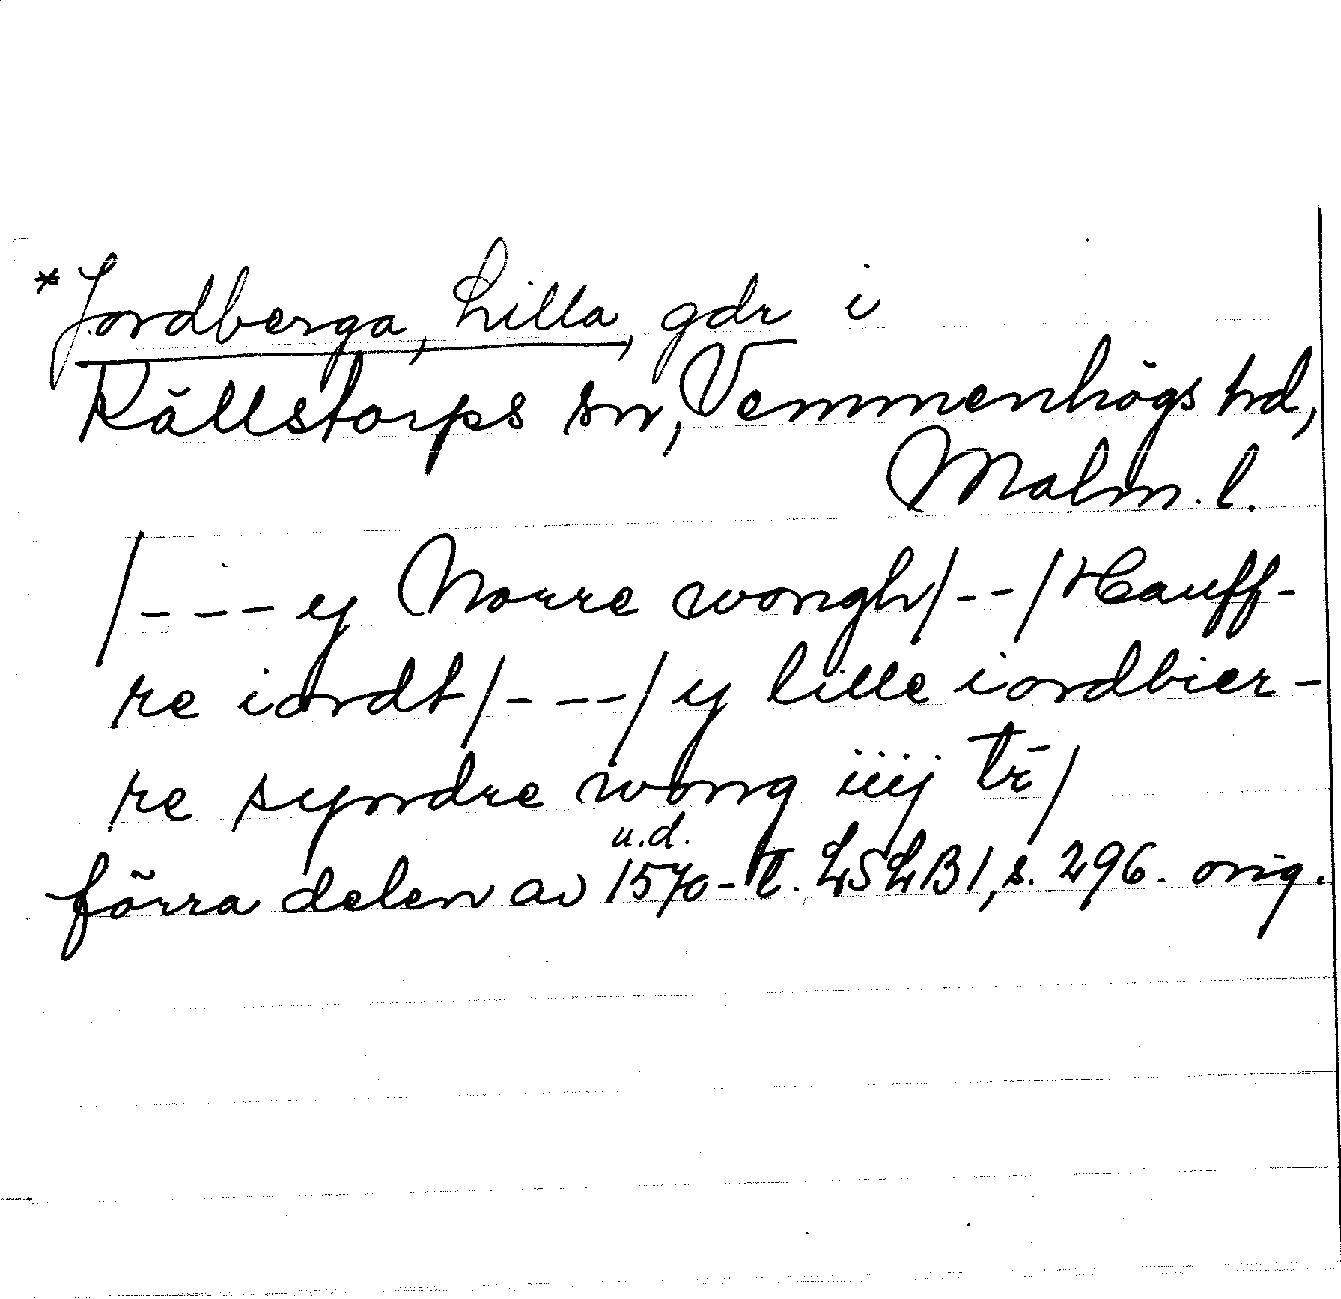 *Jordberga, Lilla, gdr i
Källstorps sn, Vemmenhögs hd,
Malm. l.
/--- y Norre wongh/--/Hauff-
re iordt/---/ y lille iordbier-
re syndre wong iiij tr̄/
u.d.
förra delen av 1570-t. LSLB I, s. 296. orig.